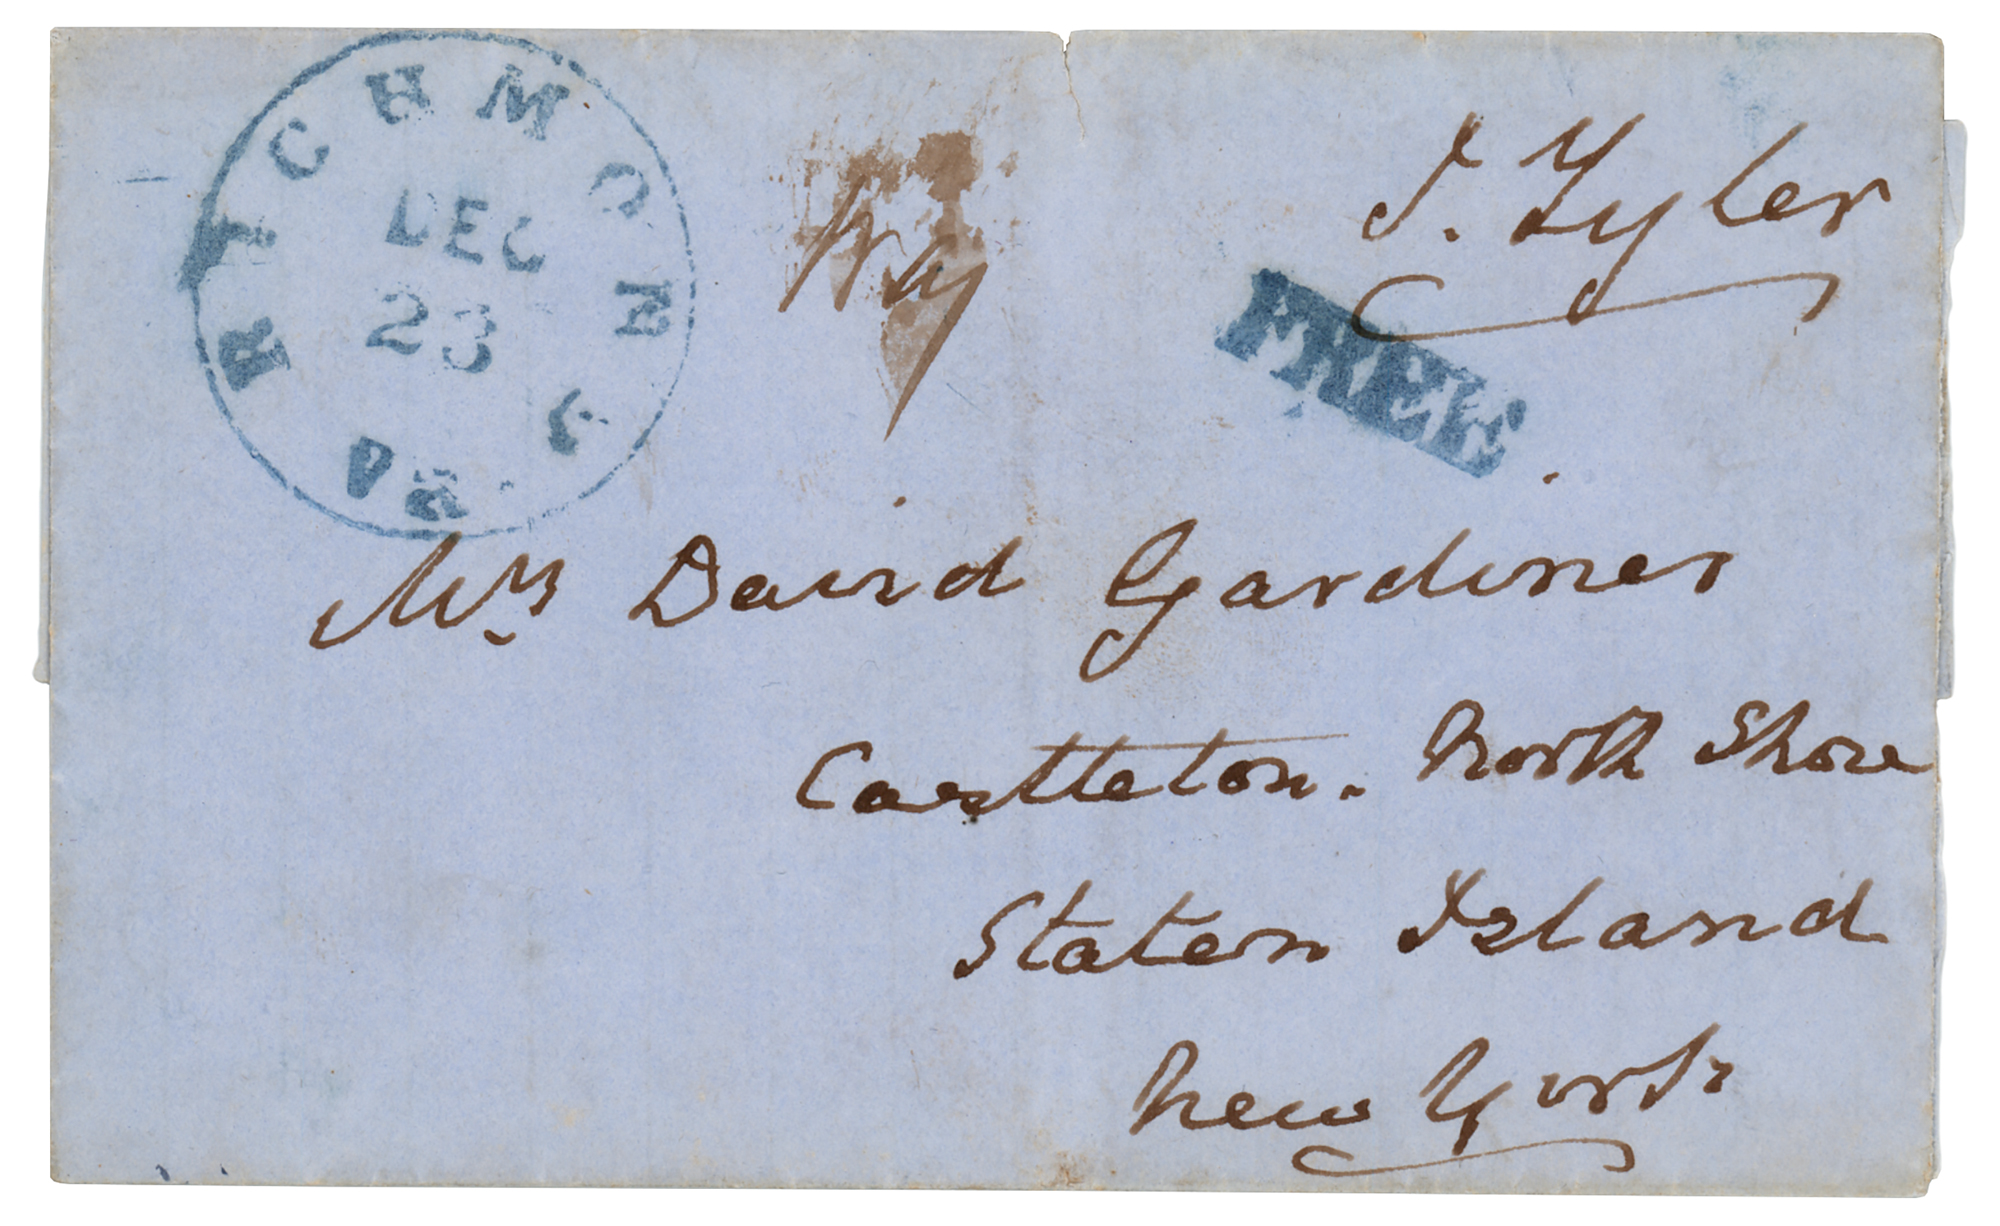 RICHMOND Va.
DEC
23
Way
J. Tyler
FREE
Mrs David Gardiner
Castleton. North Shore
Staten Island
New York